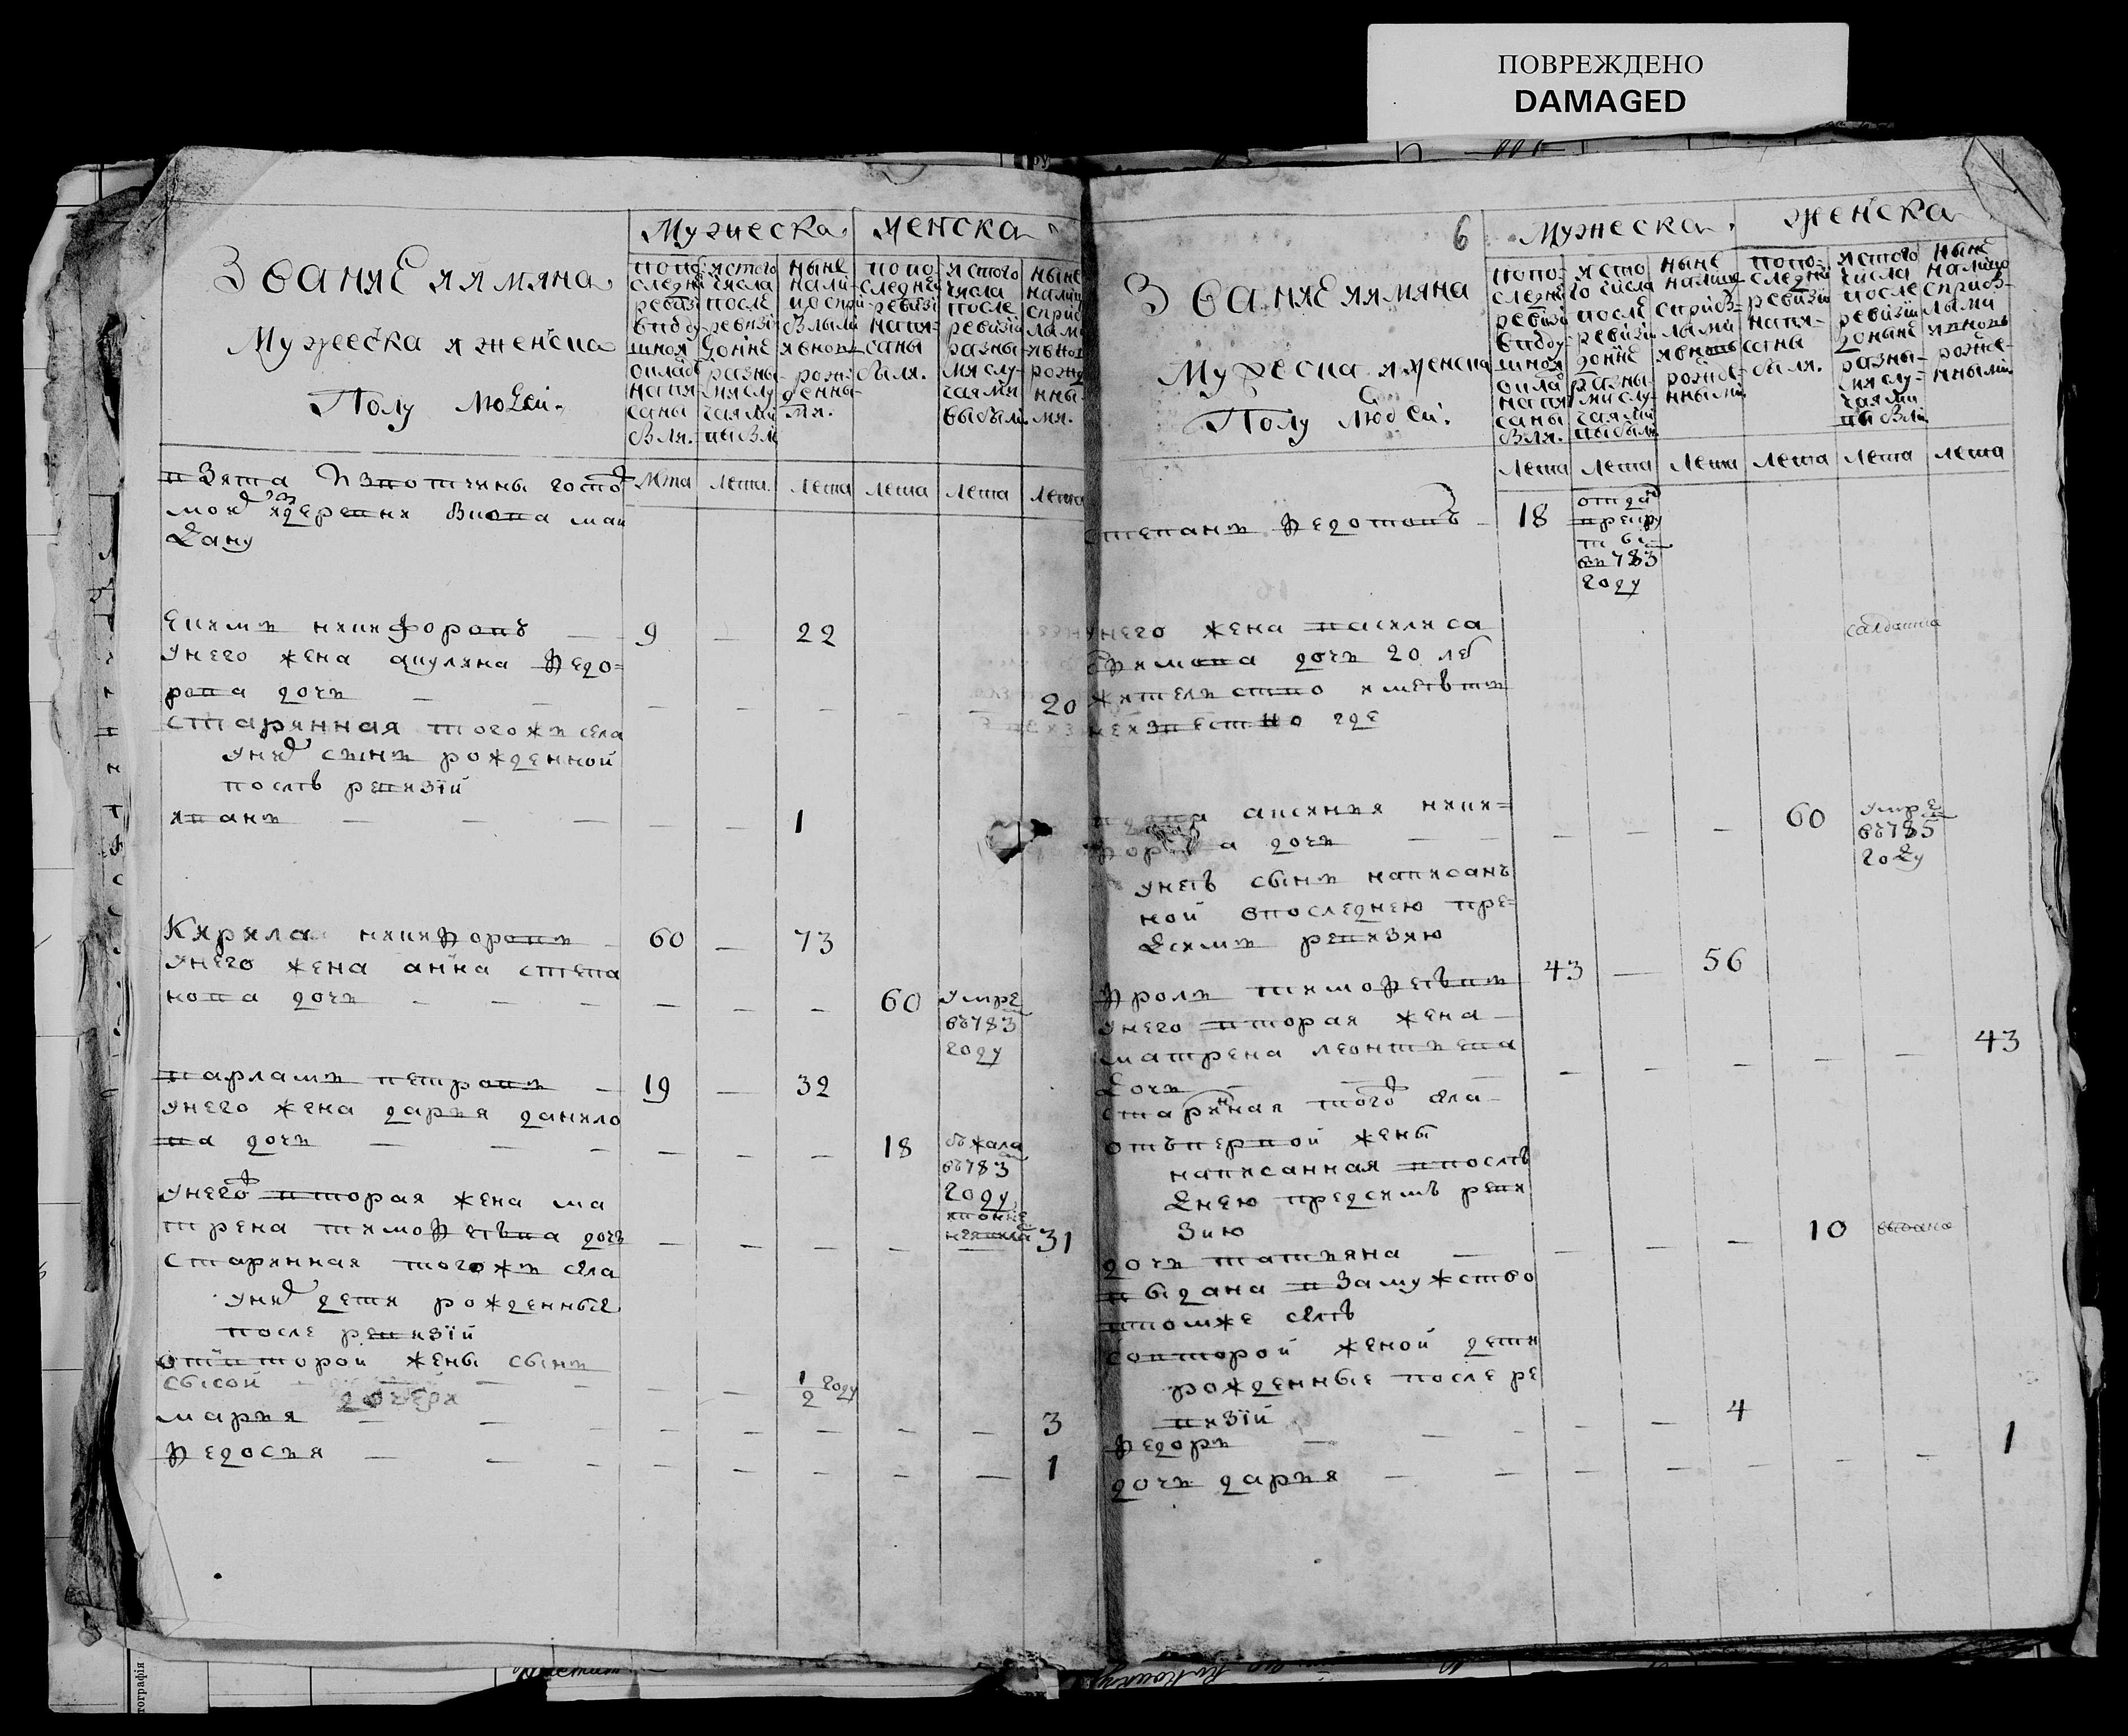 ПОВРЕЖДЕНО
DAMAGED
Звание имяна
Мужеска и женска
Полу Людеи.
Мужеска
женска
попо
следнеи
ревизи
вподу
шной
оклад
напи
саны
были.
истого
числа
после
ревизи
доныне
разны
мислу
чаями
выбыли
ныне
нали
цо спри
былыми
ивновь
рожде
нны
ми.
попо
следнеи
ревизи
напи-
саны
были.
истого
числа
после
ревизи
разны-
мислу-
чаями
выбыли.
ныне
налицо
сприб
лыми
ивнов
рожде
нны-
ми.
лета лета лета лета лета лета
взята
издеревни
дану
екимъ никифоровъ — 9 — 22
унего жена акулина федо=
рова дочь — 20
старинная тогожъ села
унихъ сынъ рожденной
послѣ ревизiй
иванъ — 1
Кирила никифоровъ — 60 — 73
унего жена анна степа
нова дочь — 60 умре
въ783
году
варламъ петровъ — 19 — 32
унего жена дарья данило
ва дочь — 18 бѣжала
въ783
году
унегожъ вторая жена ма
трена тимофѣѣвна дочь — 31
старинная тогожъ села
унихъ дети рожденные
после ревизiй
отвторои жены сынъ
сысои — 1/2 году
дочери
марья — 3
федосья — 1
6
Звание имяна
Мужеска и женска
Полу Людеи.
Мужеска.
женска
попо-
следнеи
ревизи
вподу-
шной
оклад
напи
саны
были.
исто
го числа
после
ревизи
доныне
разны
мислу
чаями
выбыли
ныне
налицо
сприб-
лыми
ивновь
рожде-
нными
попо-
следнеи
ревизiи
напи-
саны
были.
истого
числа
после
ревизiи
доныне
разны-
мислу-
чаями
выбыли
ныне
налицо
сприб-
лыми
ивновь
рожде-
нными
лета лета лета лета лета лета
степанъ федотовъ — 18 отдан
врекру
ты
въ783
году
унего жена василиса салдатка
ефимова дочь 20 лѣ
жительство имѣѣтъ
неизвестно где
вдова аксинья ники=
форова дочь — 60 умре
въ785
году
унеѣ сынъ написанъ
ной впоследнею пре=
дсимъ ревизию
фролъ тимофеѣвъ 43 — 56
унего вторая жена
матрена леонтьева — 43
дочь
старинная тогожъ села
отъпервой жены
написанная впослѣ
днею предсимъ реви
зию
дочь татьяна — 10 выдана
выдана взамужство
втомже селѣ
совторой женой дети
рожденные после ре
визiй
федоръ — 4
дочь дарья — 1